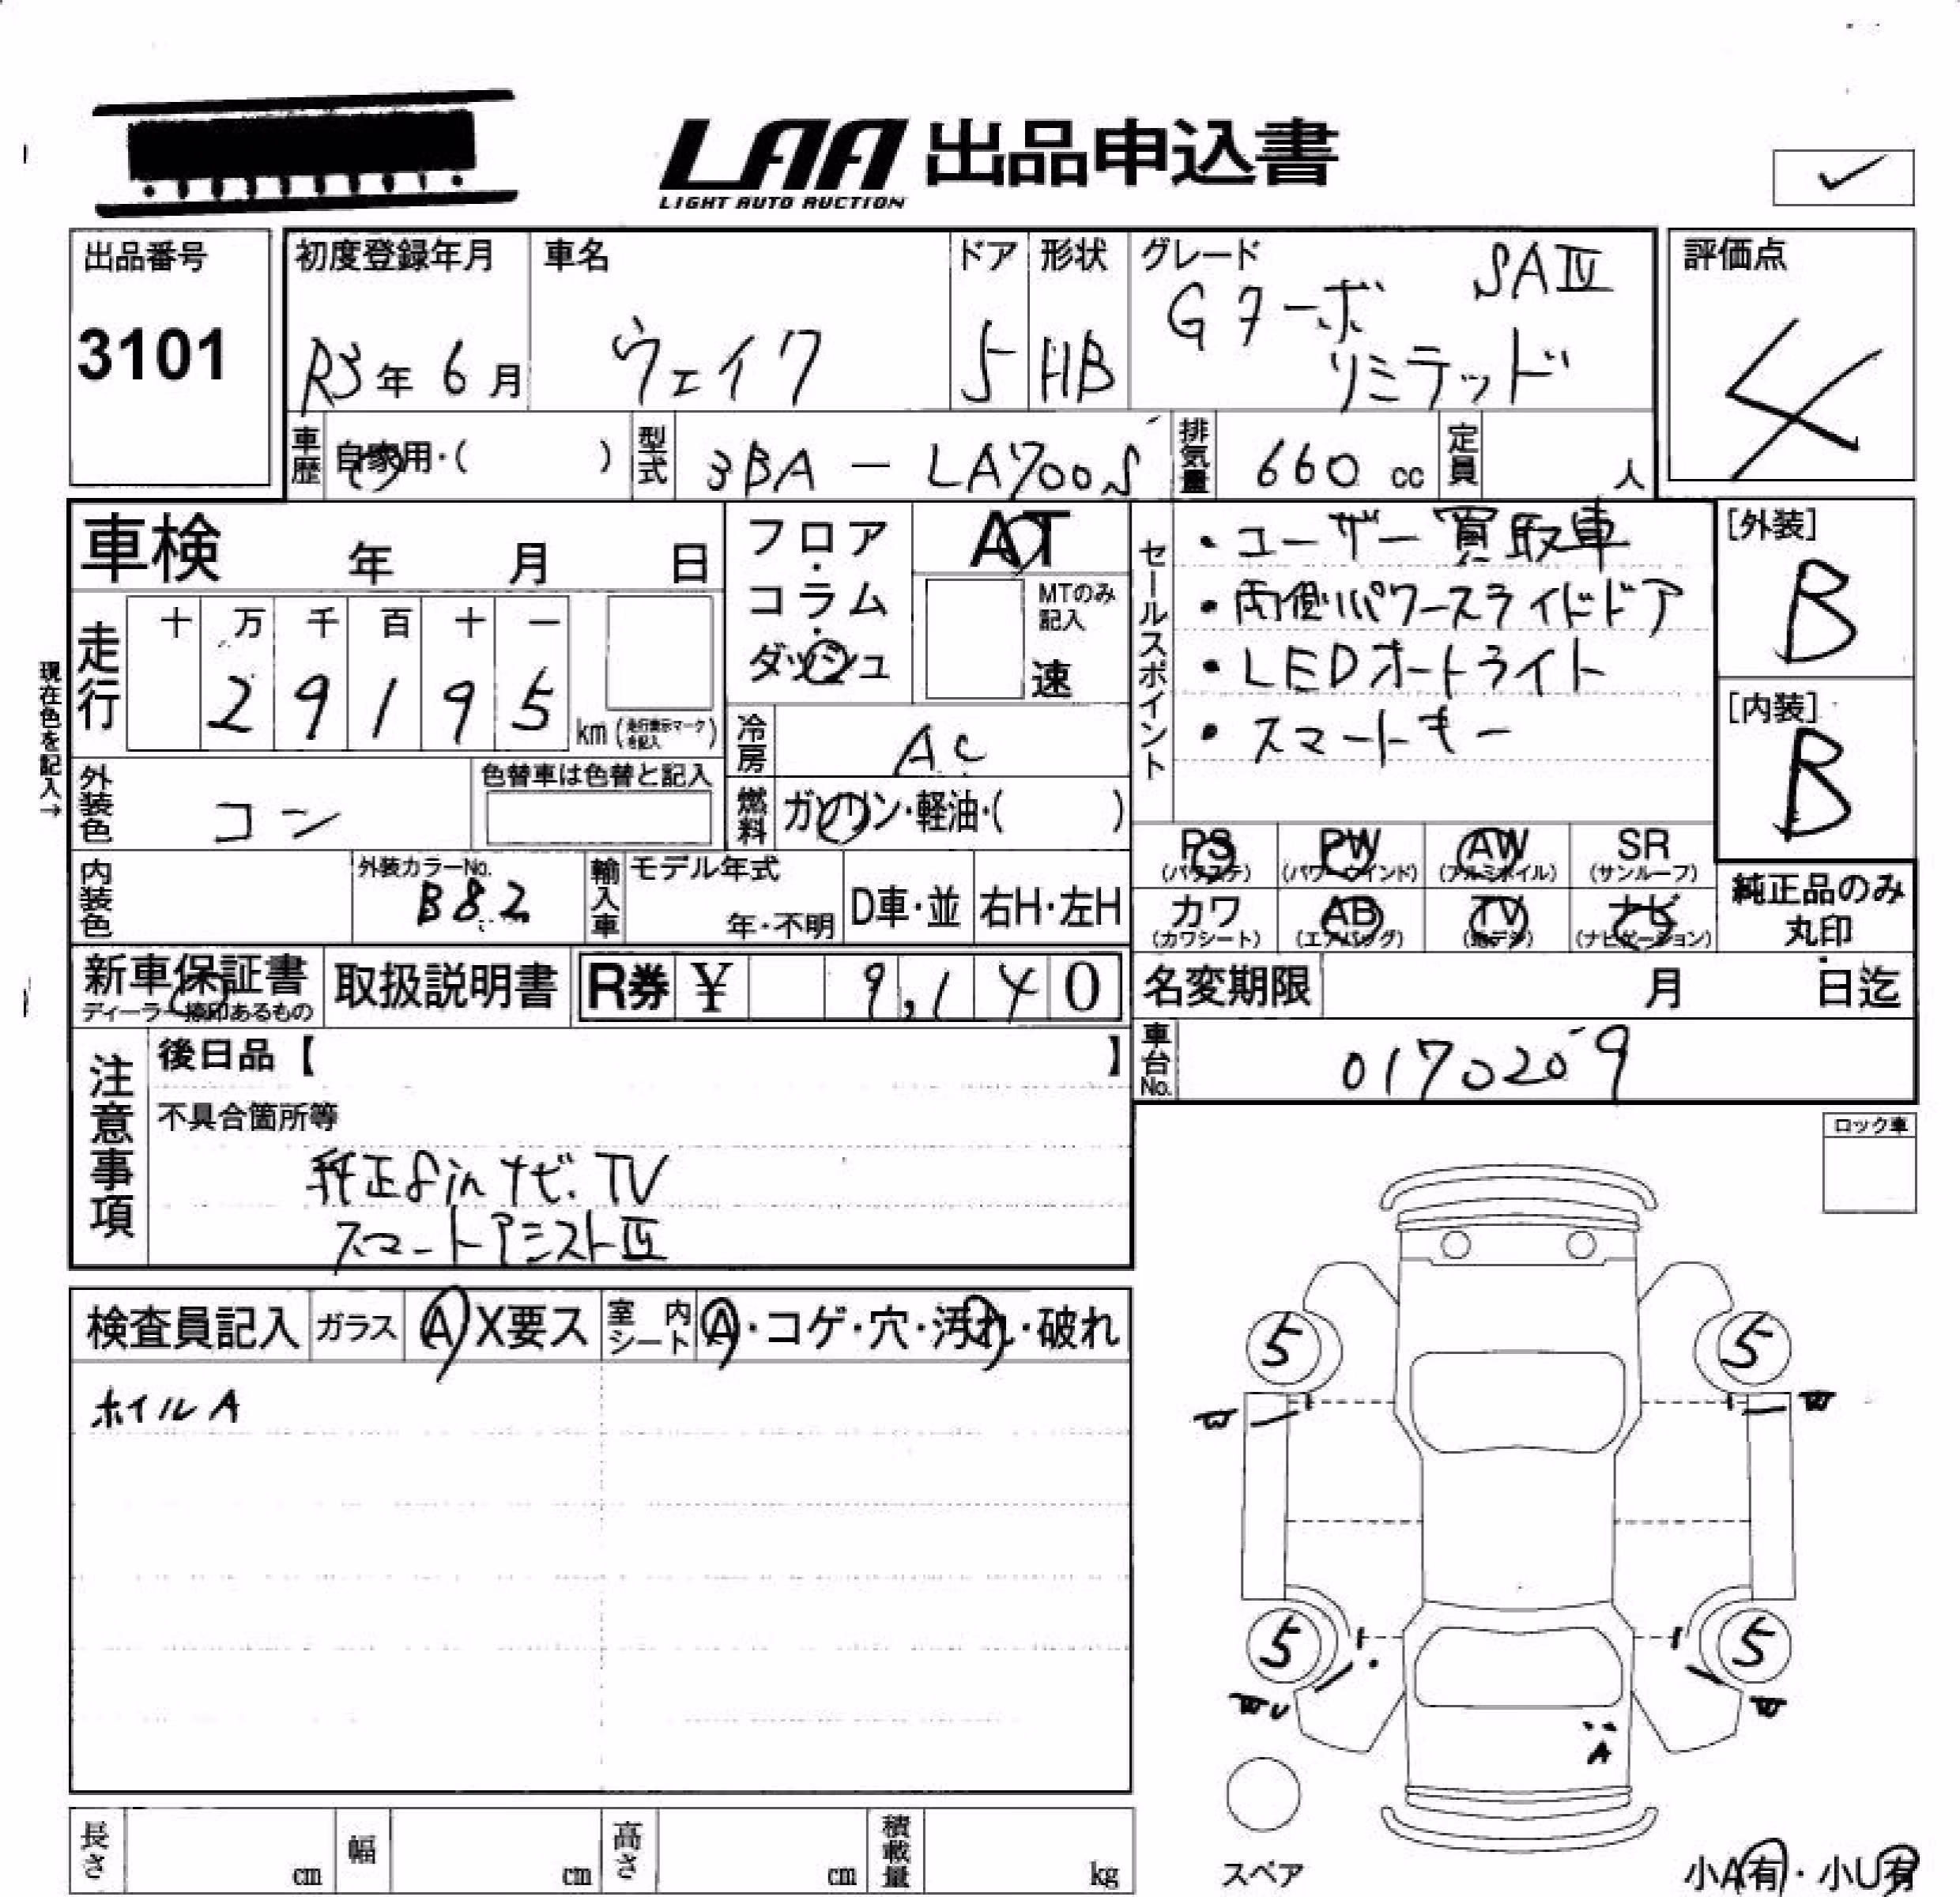 LAA 出品申込書
LIGHT AUTO AUCTION
✓
出品番号
3101
初度登録年月
R3年 6月
車名
ウェイク
ドア
5
形状
HB
グレード
SAⅣ
Gターボ
リミテッド
評価点
4
車歴
自家用・( )
型式
3BA － LA700S
排気量
660 cc
定員
人
車検 年 月 日
フロア・コラム・ダッシュ
AT
MTのみ記入
速
セールスポイント
・ユーザー買取車
・両側パワースライドドア
・LEDオートライト
・スマートキー
[外装]
B
[内装]
B
現在色を記入→
走行
十 万 千 百 十 一
2 9 1 9 5
km (走行表示マークを記入)
冷房
AC
外装色
コン
色替車は色替と記入
燃料
ガソリン・軽油・( )
PS (パワステ)
PW (パワーウインド)
AW (アルミホイル)
SR (サンルーフ)
カワ (カワシート)
AB (エアバッグ)
TV (地デジ)
ナビ (ナビゲーション)
純正品のみ
丸印
内装色
外装カラーNo.
B82
輸入車
モデル年式
年・不明
D車・並
右H・左H
新車保証書
ディーラー捺印あるもの
取扱説明書
R券 ¥ 9,140
名変期限 月 日迄
車台No.
0170209
注意事項
後日品【 】
不具合箇所等
純正8inナビ.TV
スマートアシストⅣ
ロック車
検査員記入
ガラス
A X要ス
室内シート
A・コゲ・穴・汚れ・破れ
ホイルA
5
5
W
W
5
5
WU
W
A
スペア
長さ cm
幅 cm
高さ cm
積載量 kg
小A有・小U有